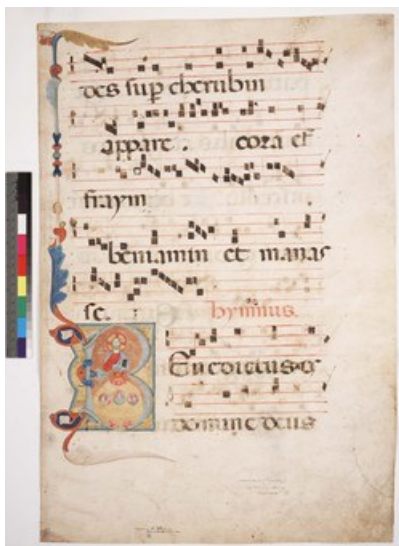 des sup cherubin
appare . cora ef
fraym
beniamin et manas
se. hymnus.
BEnedictus es
domine deus